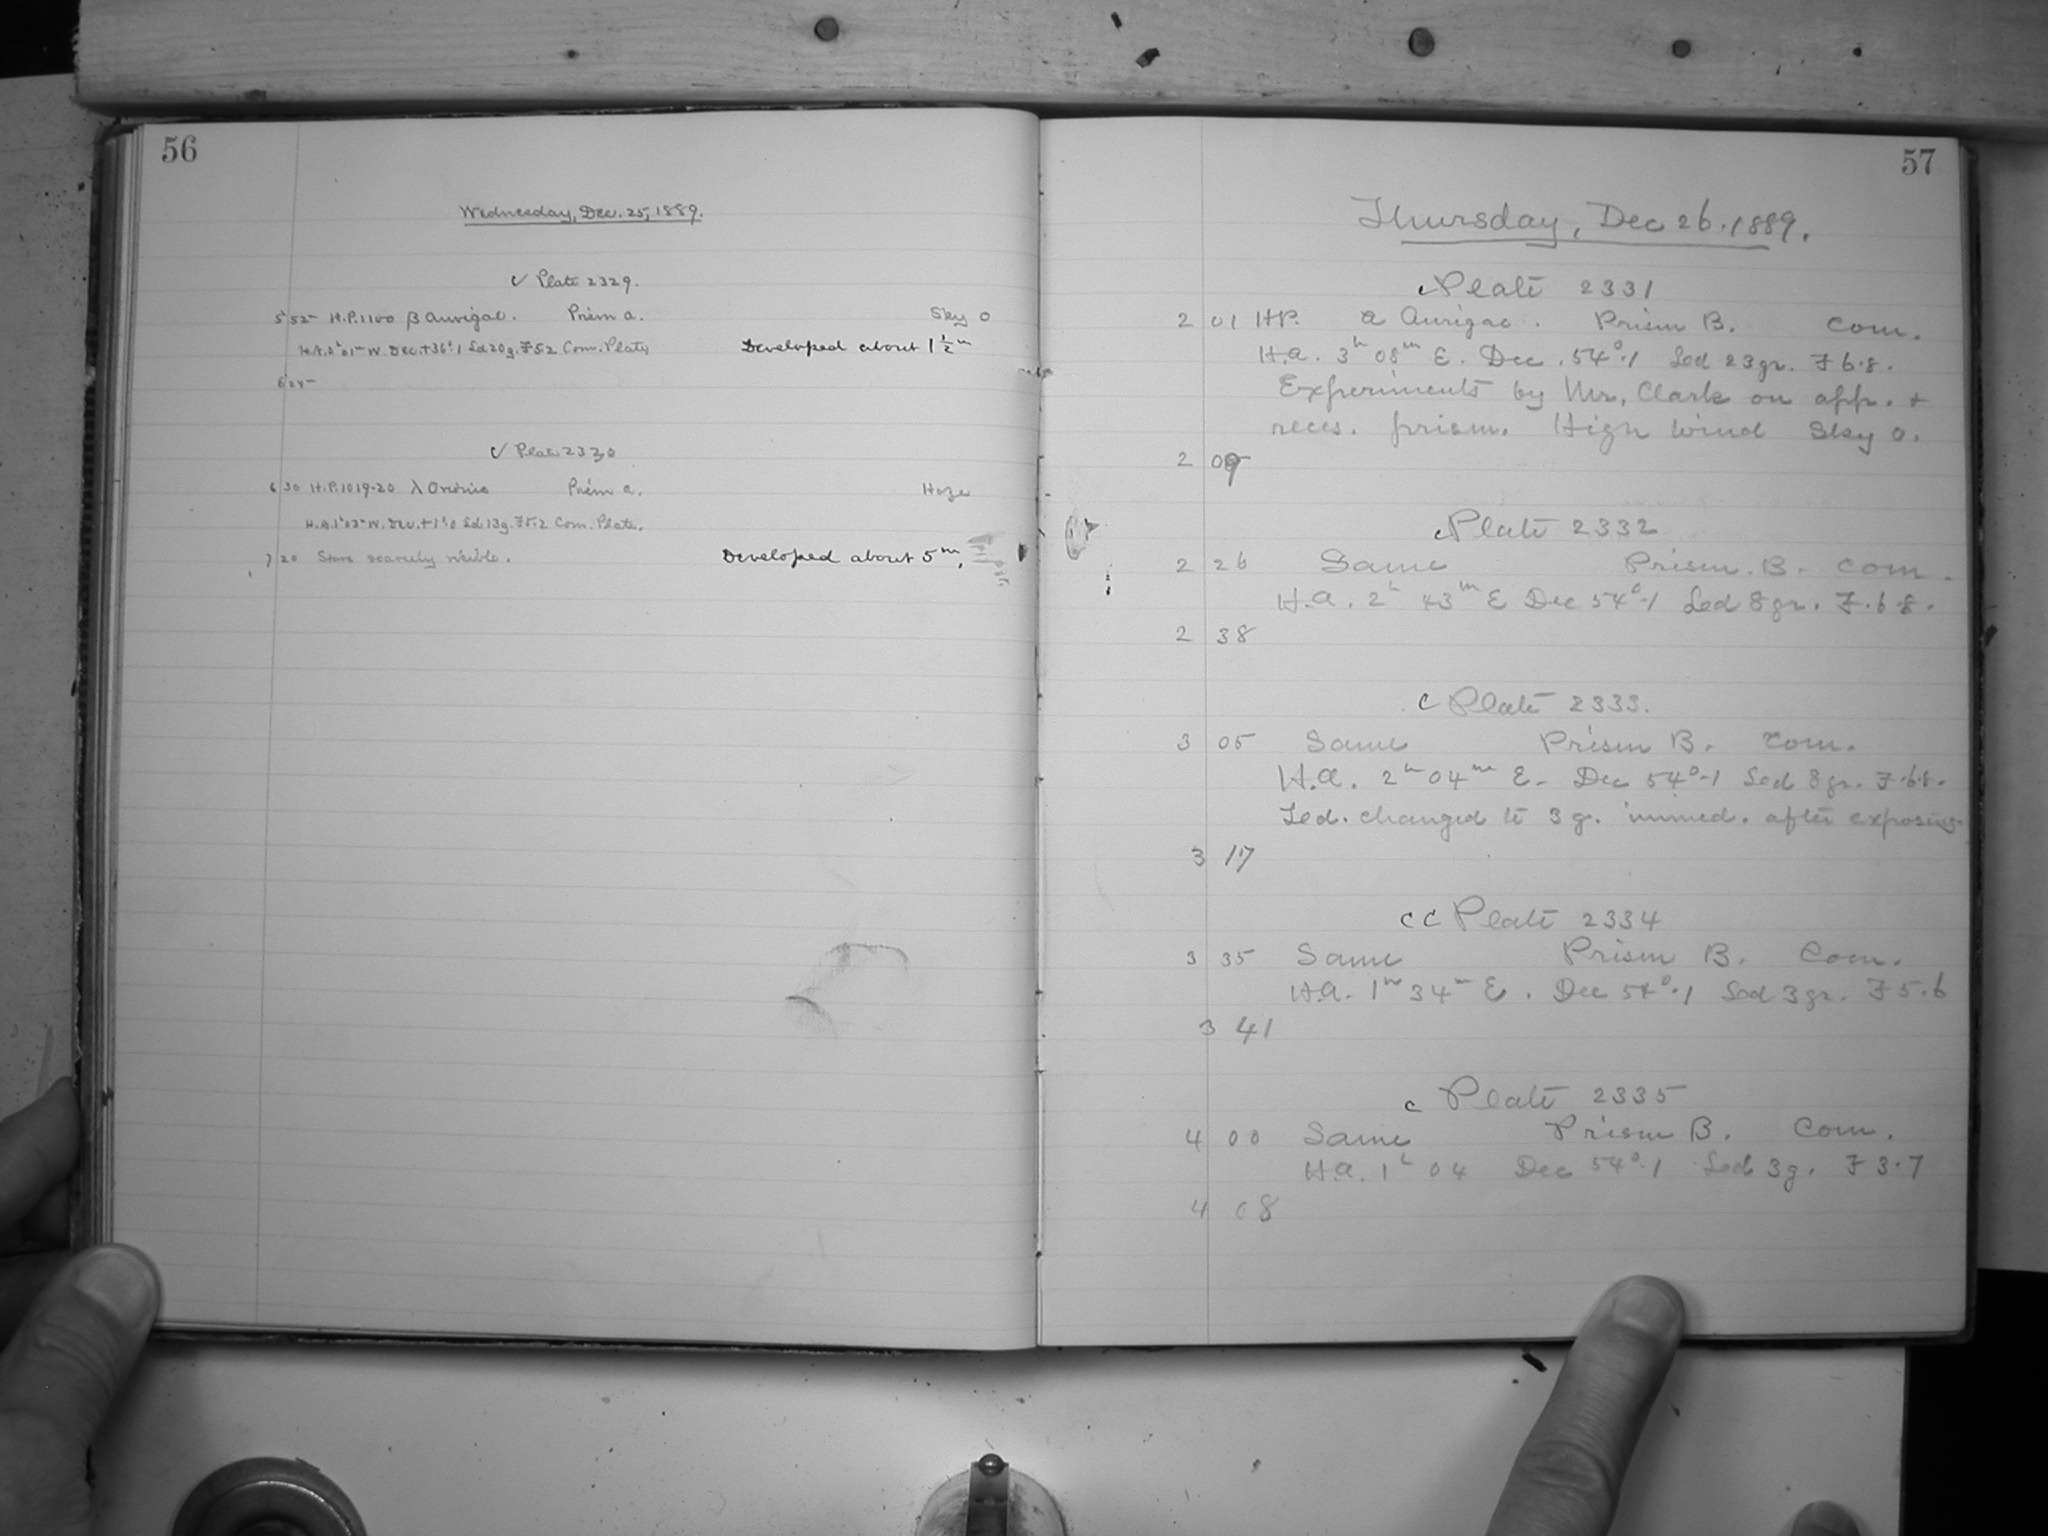 56
Wednesday, Dec. 25, 1889.
✓ Plate 2329.
5 52 H.P. 1100 β Aurigae. Prism a. Sky 0
H.A. 0h 01m W. Dec. +36°.1 Led 20g. F 5.2 Com. Plate Developed about 1 1/2 m
6 24
✓ Plate 2330
6 30 H.P. 1019-20 λ Orionis Prism a. Haze
H.A. 1h 03m W. Dec. +1°.0 Led 13g. F 5.2 Com. Plate.
7 20 Stars scarcely visible. Developed about 5 m.
57
Thursday, Dec 26. 1889.
c Plate 2331
2 01 HP. a Aurigae. Prism B. Com.
H.a. 3h 08m E. Dec. 54°.1 Led 23gr. F 6.8.
Experiments by Mr. Clark on app. +
reces. prism. High wind Sky 0.
2 09
c Plate 2332
2 26 Same Prism. B. Com.
H.a. 2h 43m E Dec 54°.1 Led 8gr. F. 6.8.
2 38
c Plate 2333.
3 05 Same Prism B. Com.
H.a. 2h 04m E. Dec 54°.1 Led 8gr. F. 6.8.
Led. changed to 3 g. immed. after exposing
3 17
c c Plate 2334
3 35 Same Prism B. Com.
H.a. 1h 34m E. Dec 54°.1 Led 3gr. F 5.6
3 41
c Plate 2335
4 00 Same Prism B. Com.
H.a. 1h 04 Dec 54°.1 Led 3g. F 3.7
4 08